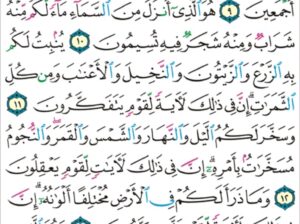 أَجْمَعِينَ ٩ هُوَ ٱلَّذِىٓ أَنزَلَ مِنَ ٱلسَّمَآءِ مَآءً لَّكُم مِّنْهُ
شَرَابٌ وَمِنْهُ شَجَرٌ فِيهِ تُسِيمُونَ ١٠ يُنۢبِتُ لَكُم
بِهِ ٱلزَّرْعَ وَٱلزَّيْتُونَ وَٱلنَّخِيلَ وَٱلْأَعْنَٰبَ وَمِن كُلِّ
ٱلثَّمَرَٰتِ إِنَّ فِى ذَٰلِكَ لَءَايَةً لِّقَوْمٍ يَتَفَكَّرُونَ ١١
وَسَخَّرَ لَكُمُ ٱلَّيْلَ وَٱلنَّهَارَ وَٱلشَّمْسَ وَٱلْقَمَرَ وَٱلنُّجُومُ
مُسَخَّرَٰتٌۢ بِأَمْرِهِۦٓ إِنَّ فِى ذَٰلِكَ لَءَايَٰتٍ لِّقَوْمٍ يَعْقِلُونَ
١٢ وَمَا ذَرَأَ لَكُمْ فِى ٱلْأَرْضِ مُخْتَلِفًا أَلْوَٰنُهُۥٓ إِنَّ